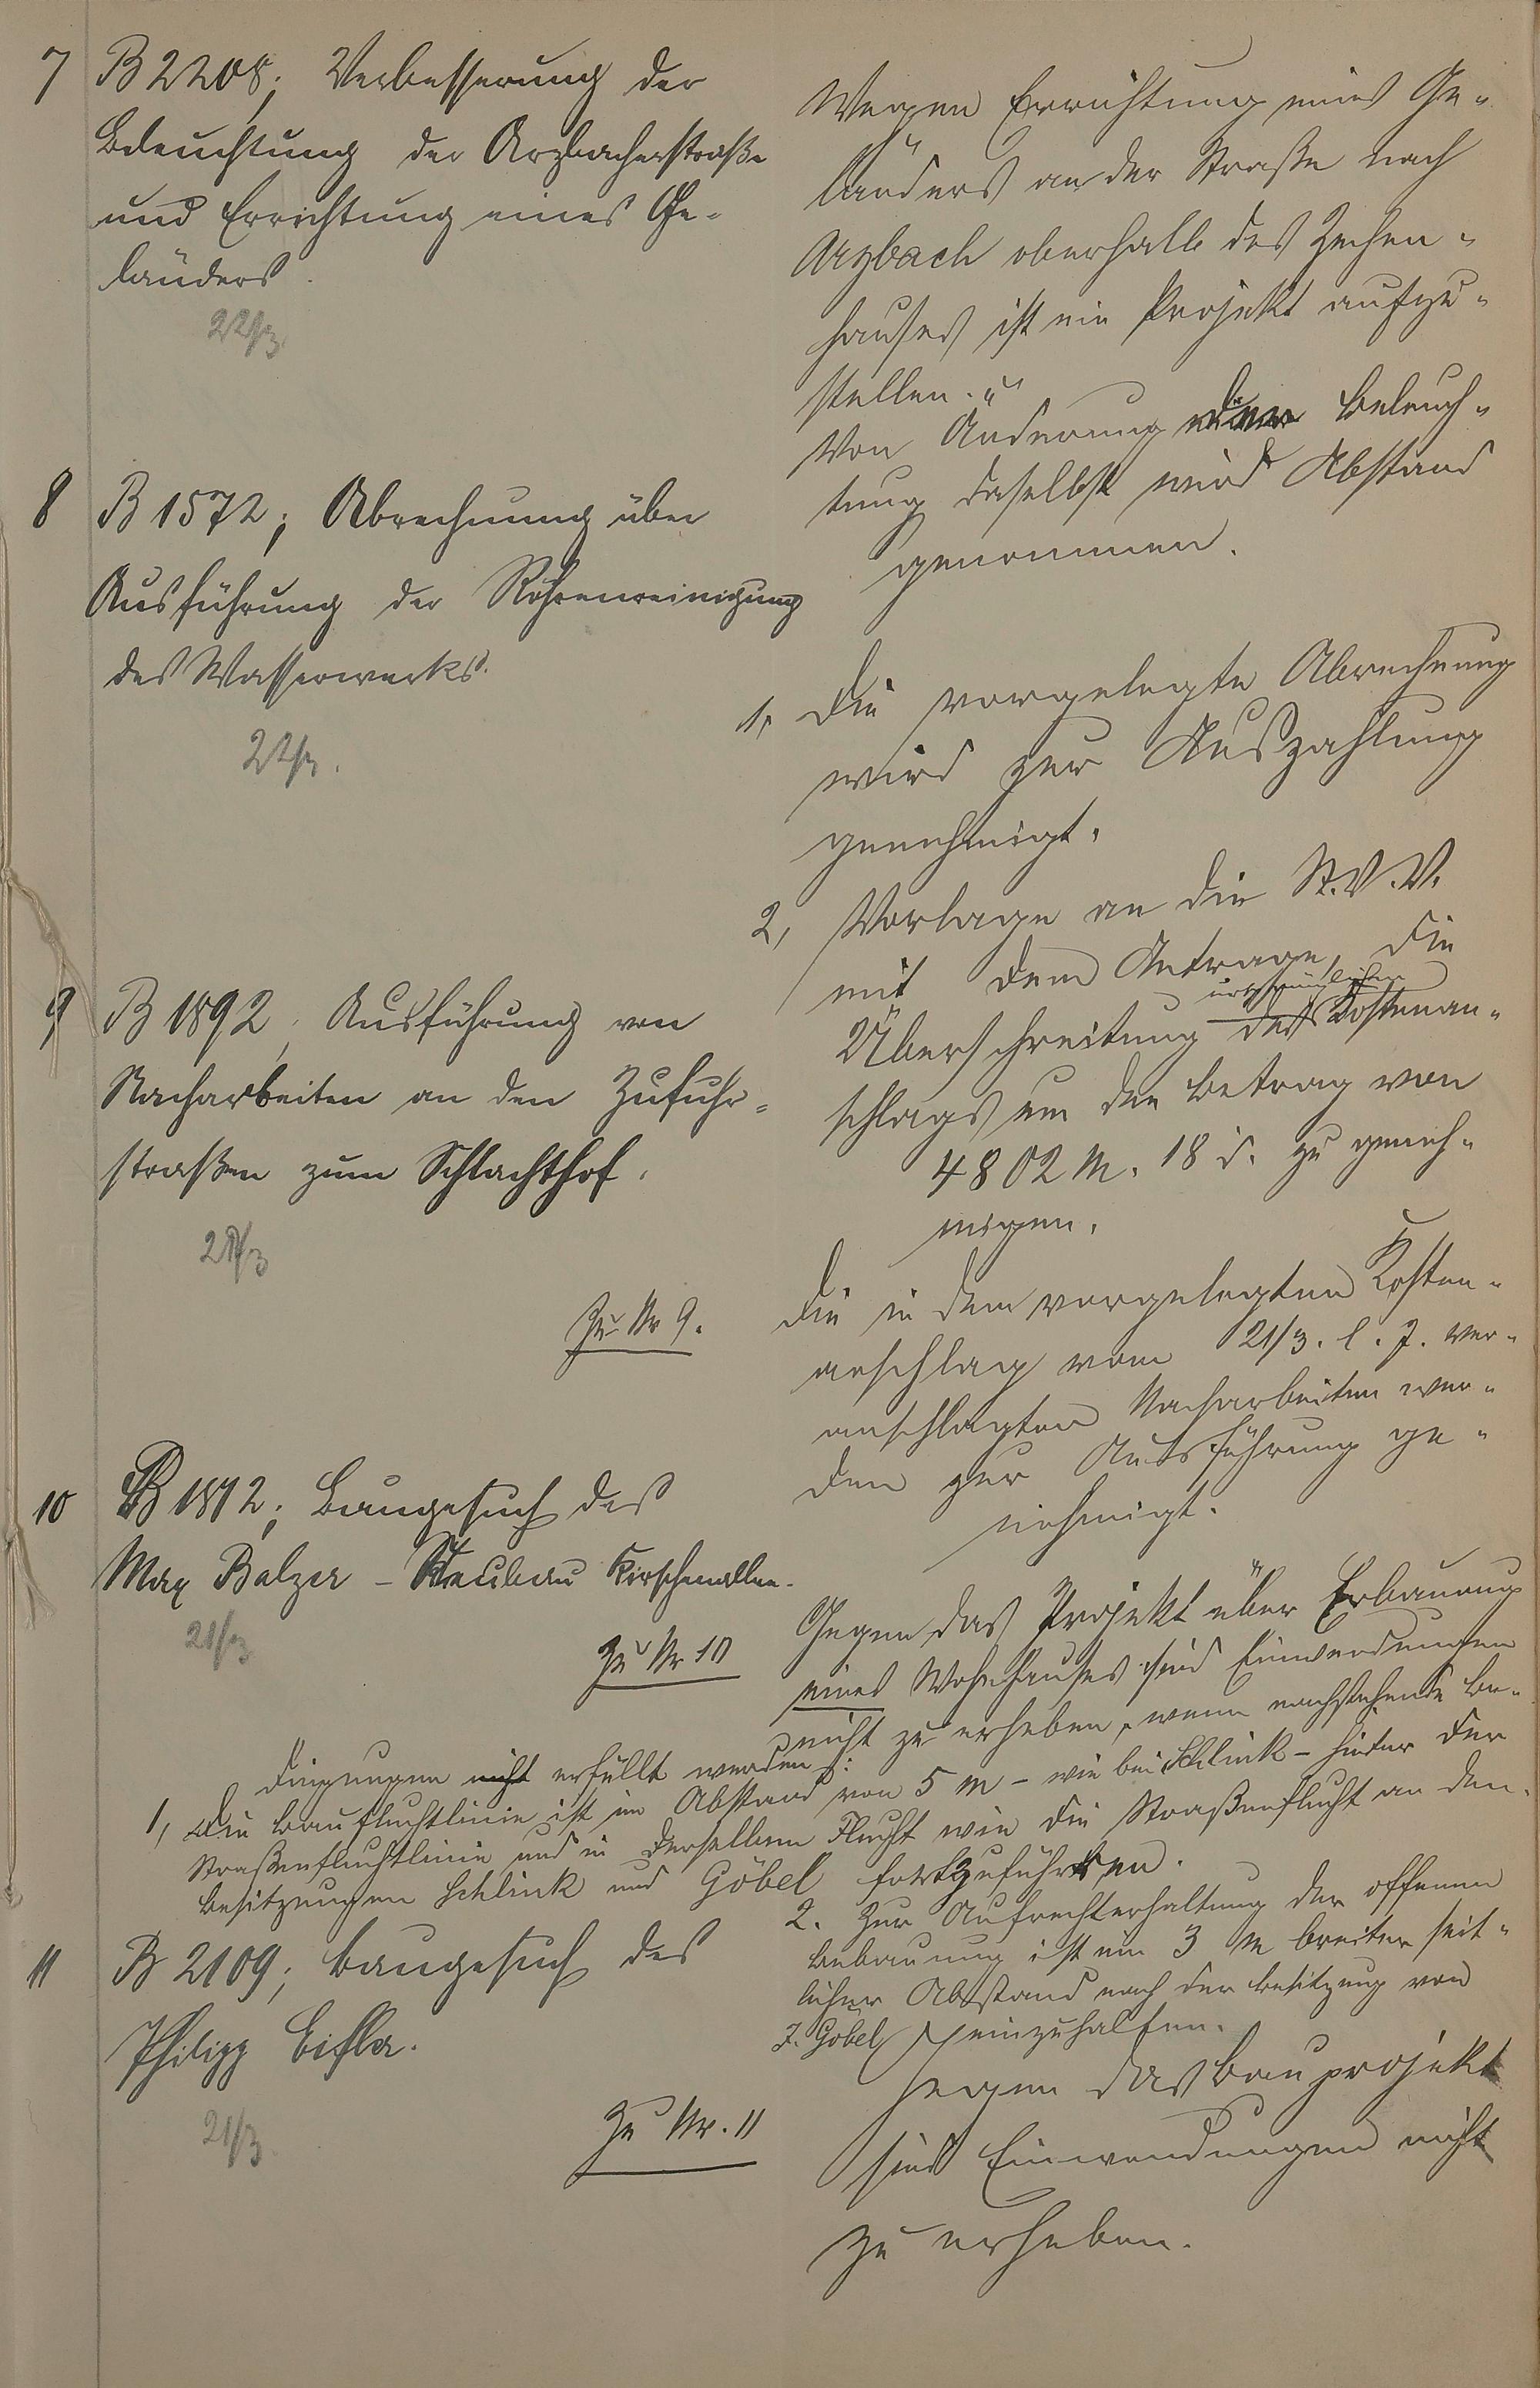 7
B 2208; Verbesserung der
Beleuchtung der Arzbacherstraße
und Errichtung eines Ge-
länders.
22/3.
Wegen Errichtung eines Ge-
länders an der Straße nach
Arzbach oberhalb des Zechen-
hauses ist ein Projekt aufzu-
stellen.
Von Änderung der Beleuch-
tung daselbst wird Abstand
genommen.
8
B 1572; Abrechnung über
Ausführung der Röhrenreinigung
des Wasserwerks.
22/3.
1, Die vorgelegte Abrechnung
wird zur Auszahlung
genehmigt.
2, Vorlage an die St.V.V.
mit dem Antrage, die
ursprünglichen
Überschreitung des Kostenan-
schlags um den Betrag von
4802 M. 18 d. zu geneh-
migen.
9
B 1892, Ausführung von
Nacharbeiten an den Zufuhr-
straßen zum Schlachthof.
21/3
Zu Nr 9.
Die in dem vorgelegten Kosten-
anschlag vom 21/3. l. J. ver-
anschlagten Nacharbeiten wer-
den zur Ausführung ge-
nehmigt.
10
B 1872; Baugesuch des
Max Balzer - Neubau Kirschenallee.
21/3
Zu Nr. 10
Gegen das Projekt über Erbauung
eines Wohnhauses sind Einwendungen
nicht zu erheben, wenn nachstehende Be-
dingungen nicht erfüllt werden:
1, Die Baufluchtlinie ist im Abstand von 5 m - wie bei Schlink - hinter der
Straßenfluchtlinie und in derselben Flucht wie die Straßenflucht an den
Besitzungen Schlink und Göbel fortzuführen.
2. Zur Aufrechterhaltung der offenen
Bebauung ist ein 3 m breiter seit-
licher Abstand nach der Besitzung von
J. Göbel einzuhalten.
11
B 2109; Baugesuch des
Philipp Eifler.
21/3.
Zu Nr. 11
Gegen das Bauprojekt
sind Einwendungen nicht
zu erheben.